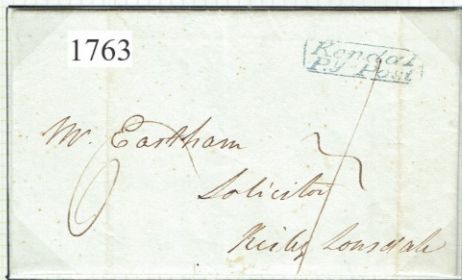 1763
Kendal
Py Post
Mr. Eastham
Solicitor
Kirby Lonsdale